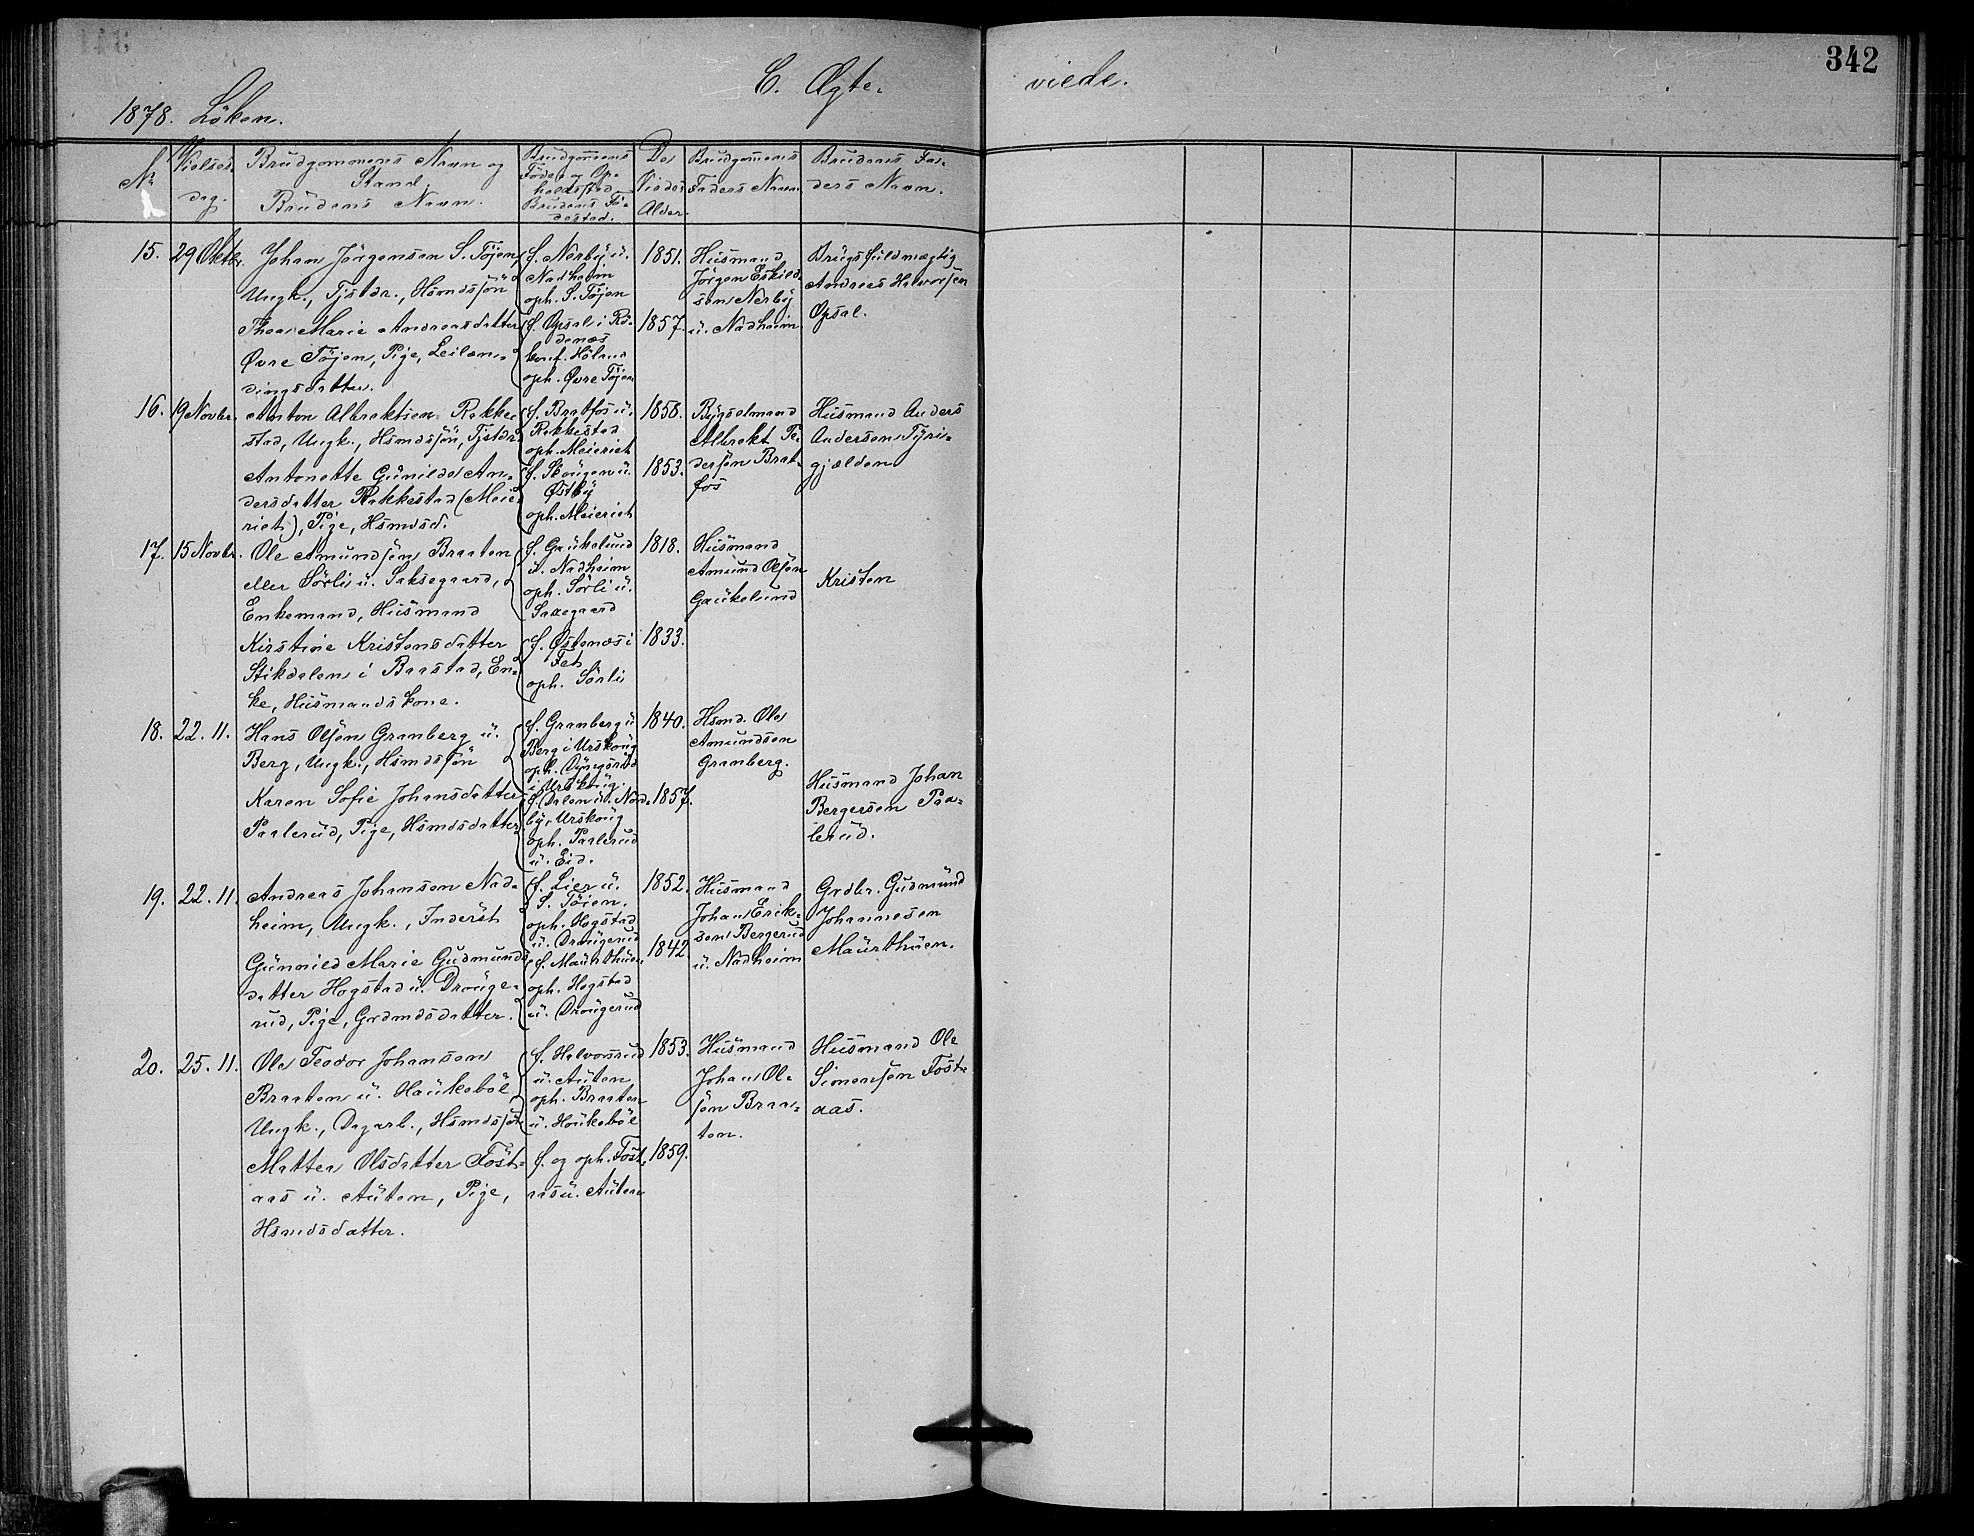 342
C. Ægte- viede.
1878. Löken.
No
Vielses-
dag.
Brudgommens Navn og
Stand.
Brudens Navn.
Brudgomens
Føde og Op-
holdssted
Brudens Fø-
dested.
De
Viedes
Alder.
Brudgomens
Faders Navn
Brudens Fa-
ders Navn.
15. 29 Oktbr.
Johan Jörgensen S. Töjen,
Ungk., Tjstdr., Hsmdssön
Thea Marie Andreasdatter
Øvre Töjen, Pige, Leilæn-
dingsdatter.
f. Nerby u.
Nadheim
oph. S. Töjen
f. Opsal i Rö-
denæs
konf. Höland
oph. Øvre Töjen
1851.
1857.
Husmand
Jörgen Eskild-
sen Nerby
u. Nadheim
Brugsfuldmægtig
Andreas Halvorsen
Opsal.
16. 19 Novbr.
Anton Albrektsen Rakke-
stad, Ungk., Hsmdssön, Tjstdr.
Antonette Gunilde An-
dersdatter Rakkestad (Meie-
riet), Pige, Hsmdsd.
f. Bratfos u.
Rakkestad
oph. Meieriet
f. Skougen u.
Østby
oph. Meieriet
1858.
1853.
Bygselmand
Albrekt Pe-
dersen Brat-
fos
Husmand Anders
Andersen Tyri-
gjelden
17. 15 Novbr.
Ole Amundsen Braaten
eller Sörli u. Saksegaard,
Enkemand, Husmand
Kirstine Kristensdatter
Stikdalen i Baastad, En-
ke, Husmandskone.
f. Gaukelund
u. Nadheim
oph. Sörli u.
Saxegaard
f. Østenæs i
Fet
oph. Sörli
1818.
1833.
Husmand
Amund Olsen
Gaukelund
Kristen
18. 22. 11.
Hans Olsen Granberg u.
Berg, Ungk., Hsmdssön
Karen Sofie Johansdatter
Paalerud, Pige, Hsmdsdatter
f. Granberg u.
Berg i Urskoug
oph.
i Urskoug
f. Dalen u. Nord-
by, Urskoug
oph. Paalerud
u. Eid.
1840.
1857.
Hsmd. Ole
Amundsen
Granberg.
Husmand Johan
Bergersen Paa-
lerud.
19. 22. 11.
Andreas Johansen Nad-
heim, Ungk., Inderst
Gunnild Marie Gudmunds-
datter Hogstad u. Drouge-
rud, Pige, Grdmdsdatter.
f. Lier u.
S. Töien.
oph. Hogstad
u. Drougerud
f. Maurthuen
oph. Hogstad
u. Drougerud
1852.
1842.
Husmand
Johan Erik-
sen Bergerud
u. Nadheim
Grdbr. Gudmund
Johannesen
Maurthuen.
20. 25. 11.
Ole Teodor Johansen
Braaten u. Haukeböl
Ungk., Dagarb., Hsmdssön
Mattea Olsdatter Föst-
aas u. Auten, Pige,
Hsmdsdatter.
f. Halvorsrud
u. Auten
oph. Braaten
u. Haukeböl
f. og oph. Föst-
aas u. Auten
1853.
1859.
Husmand
Johan Ol-
sen Braa-
ten.
Husmand Ole
Simensen Föst-
aas.